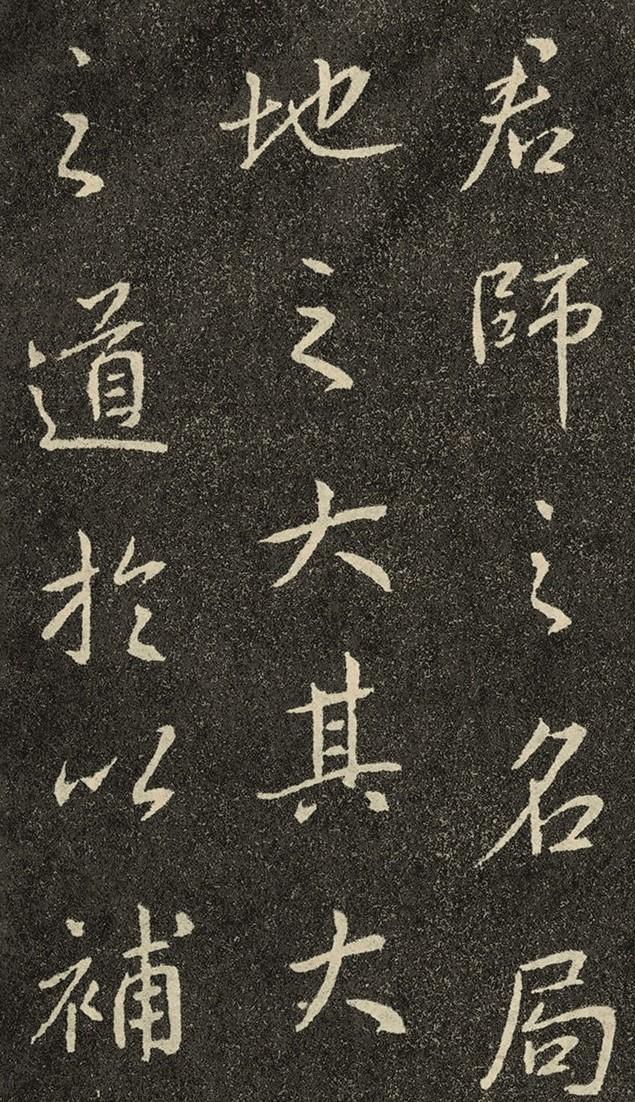 君師之名局
地之大其大
之道於以補